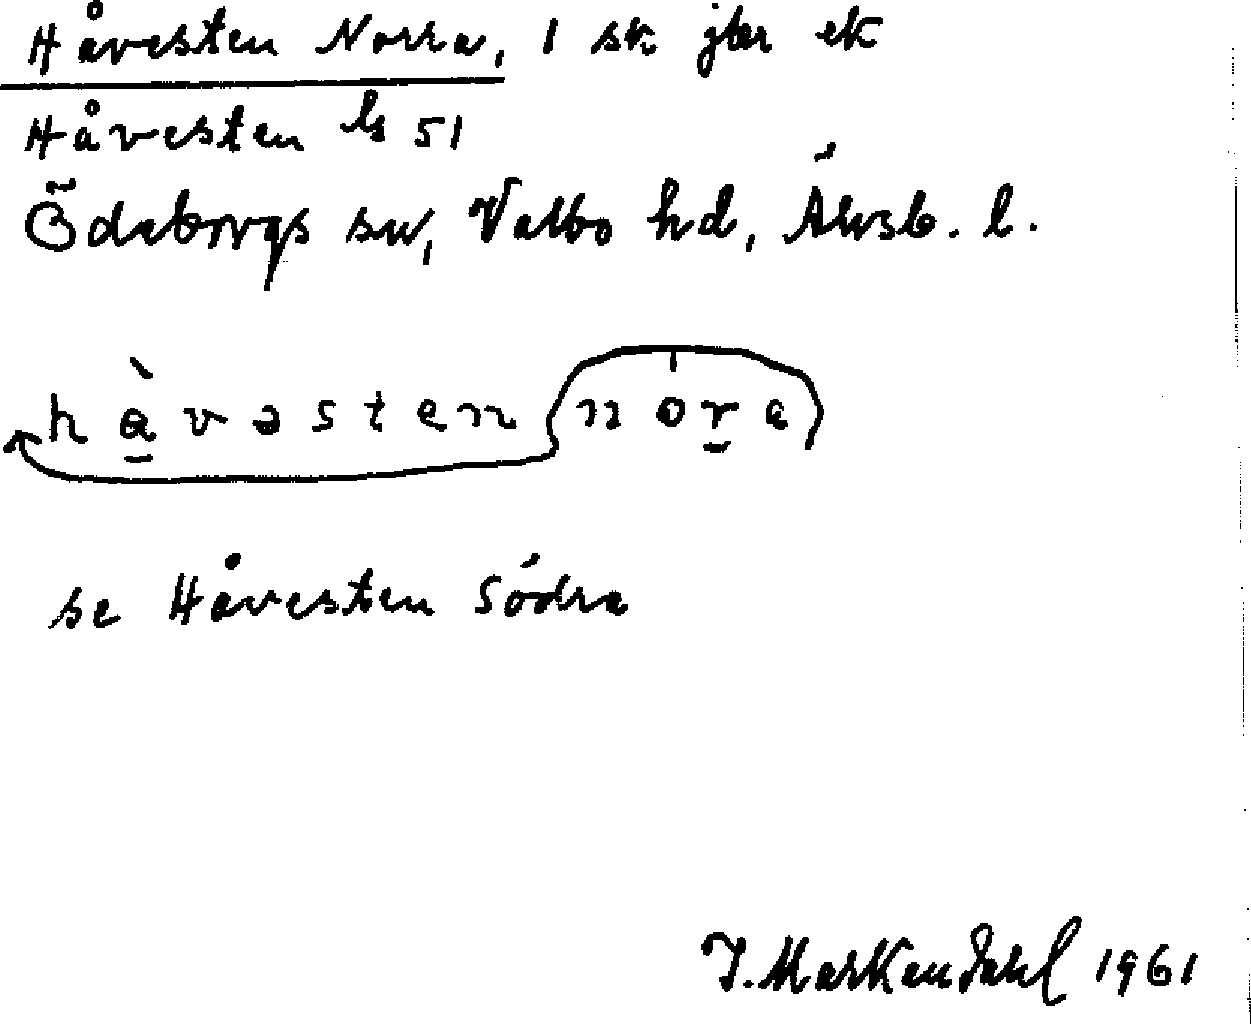 Håvesten Norra, 1 sk jbr ek
Håvesten ls 51
Ödeborgs sn, Valbo hd, Älvsb. l.
hàvəsten (nora)
se Håvesten Södra
J. Markendahl 1961